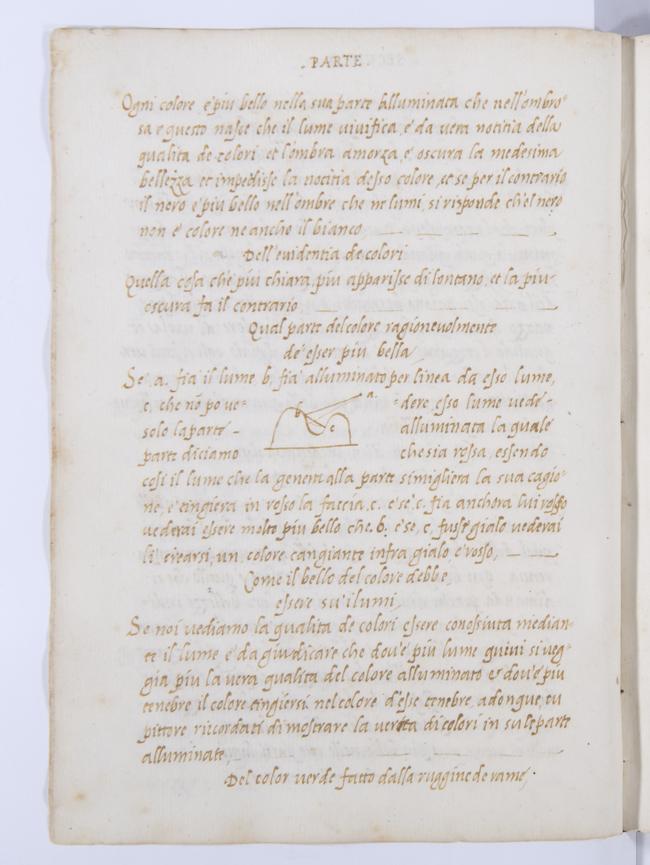 PARTE
Ogni colore e piu bello nella sua parte alluminata che nell'ombro=
sa e questo nasce che il lume vivifica, e da vera notitia della
qualita de colori et l'ombra amorza, e oscura la medesima
bellezza et impedisse la notitia d'esso colore, et se per il contrario
il nero e piu bello nell'ombre che ne lumi, si risponde ch'el nero
non e colore ne ancho il bianco
Dell'evidentia de colori
Quella cosa che piu chiara, piu apparisse di lontano, et la piu
oscura fa il contrario
Qual parte del colore ragionevolmente
de esser piu bella
Se .a. fia il lume b, fia alluminato per linea da esso lume,
c, che nō po ve= dere esso lume vede=
a.
b
c
solo la parte= alluminata la quale
parte diciamo che sia rossa, essendo
cosi il lume che la genera alla parte simigliera la sua cagio=
ne, e tingiera in rosso la faccia .c. e se .c. fia anchora lui rosso
vederai essere molto piu bello che .b. e se, c, fusse gialo vederai
li crearsi, un colore cangiante infra gialo, e rosso,
Come il bello del colore debbe
essere su i lumi
Se noi vediamo la qualita de colori essere conossiuta median=
te il lume e da giudicare che dov'e piu lume quivi si veg=
gia piu la vera qualita del colore alluminato & dov'e piu
tenebre il colore tingiersi nel colore d'esse tenebre, adonque tu
pittore riccordati di mostrare la verita di colori in su le parte
alluminate,
Del color verde fatto dalla ruggine de rame,